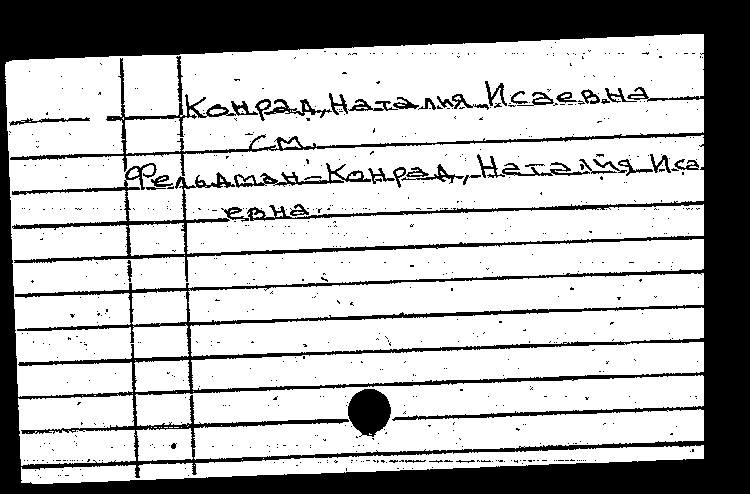 Конрад, Наталия Исаевна
см.
Фельдман-Конрад, Наталия Иса
евна